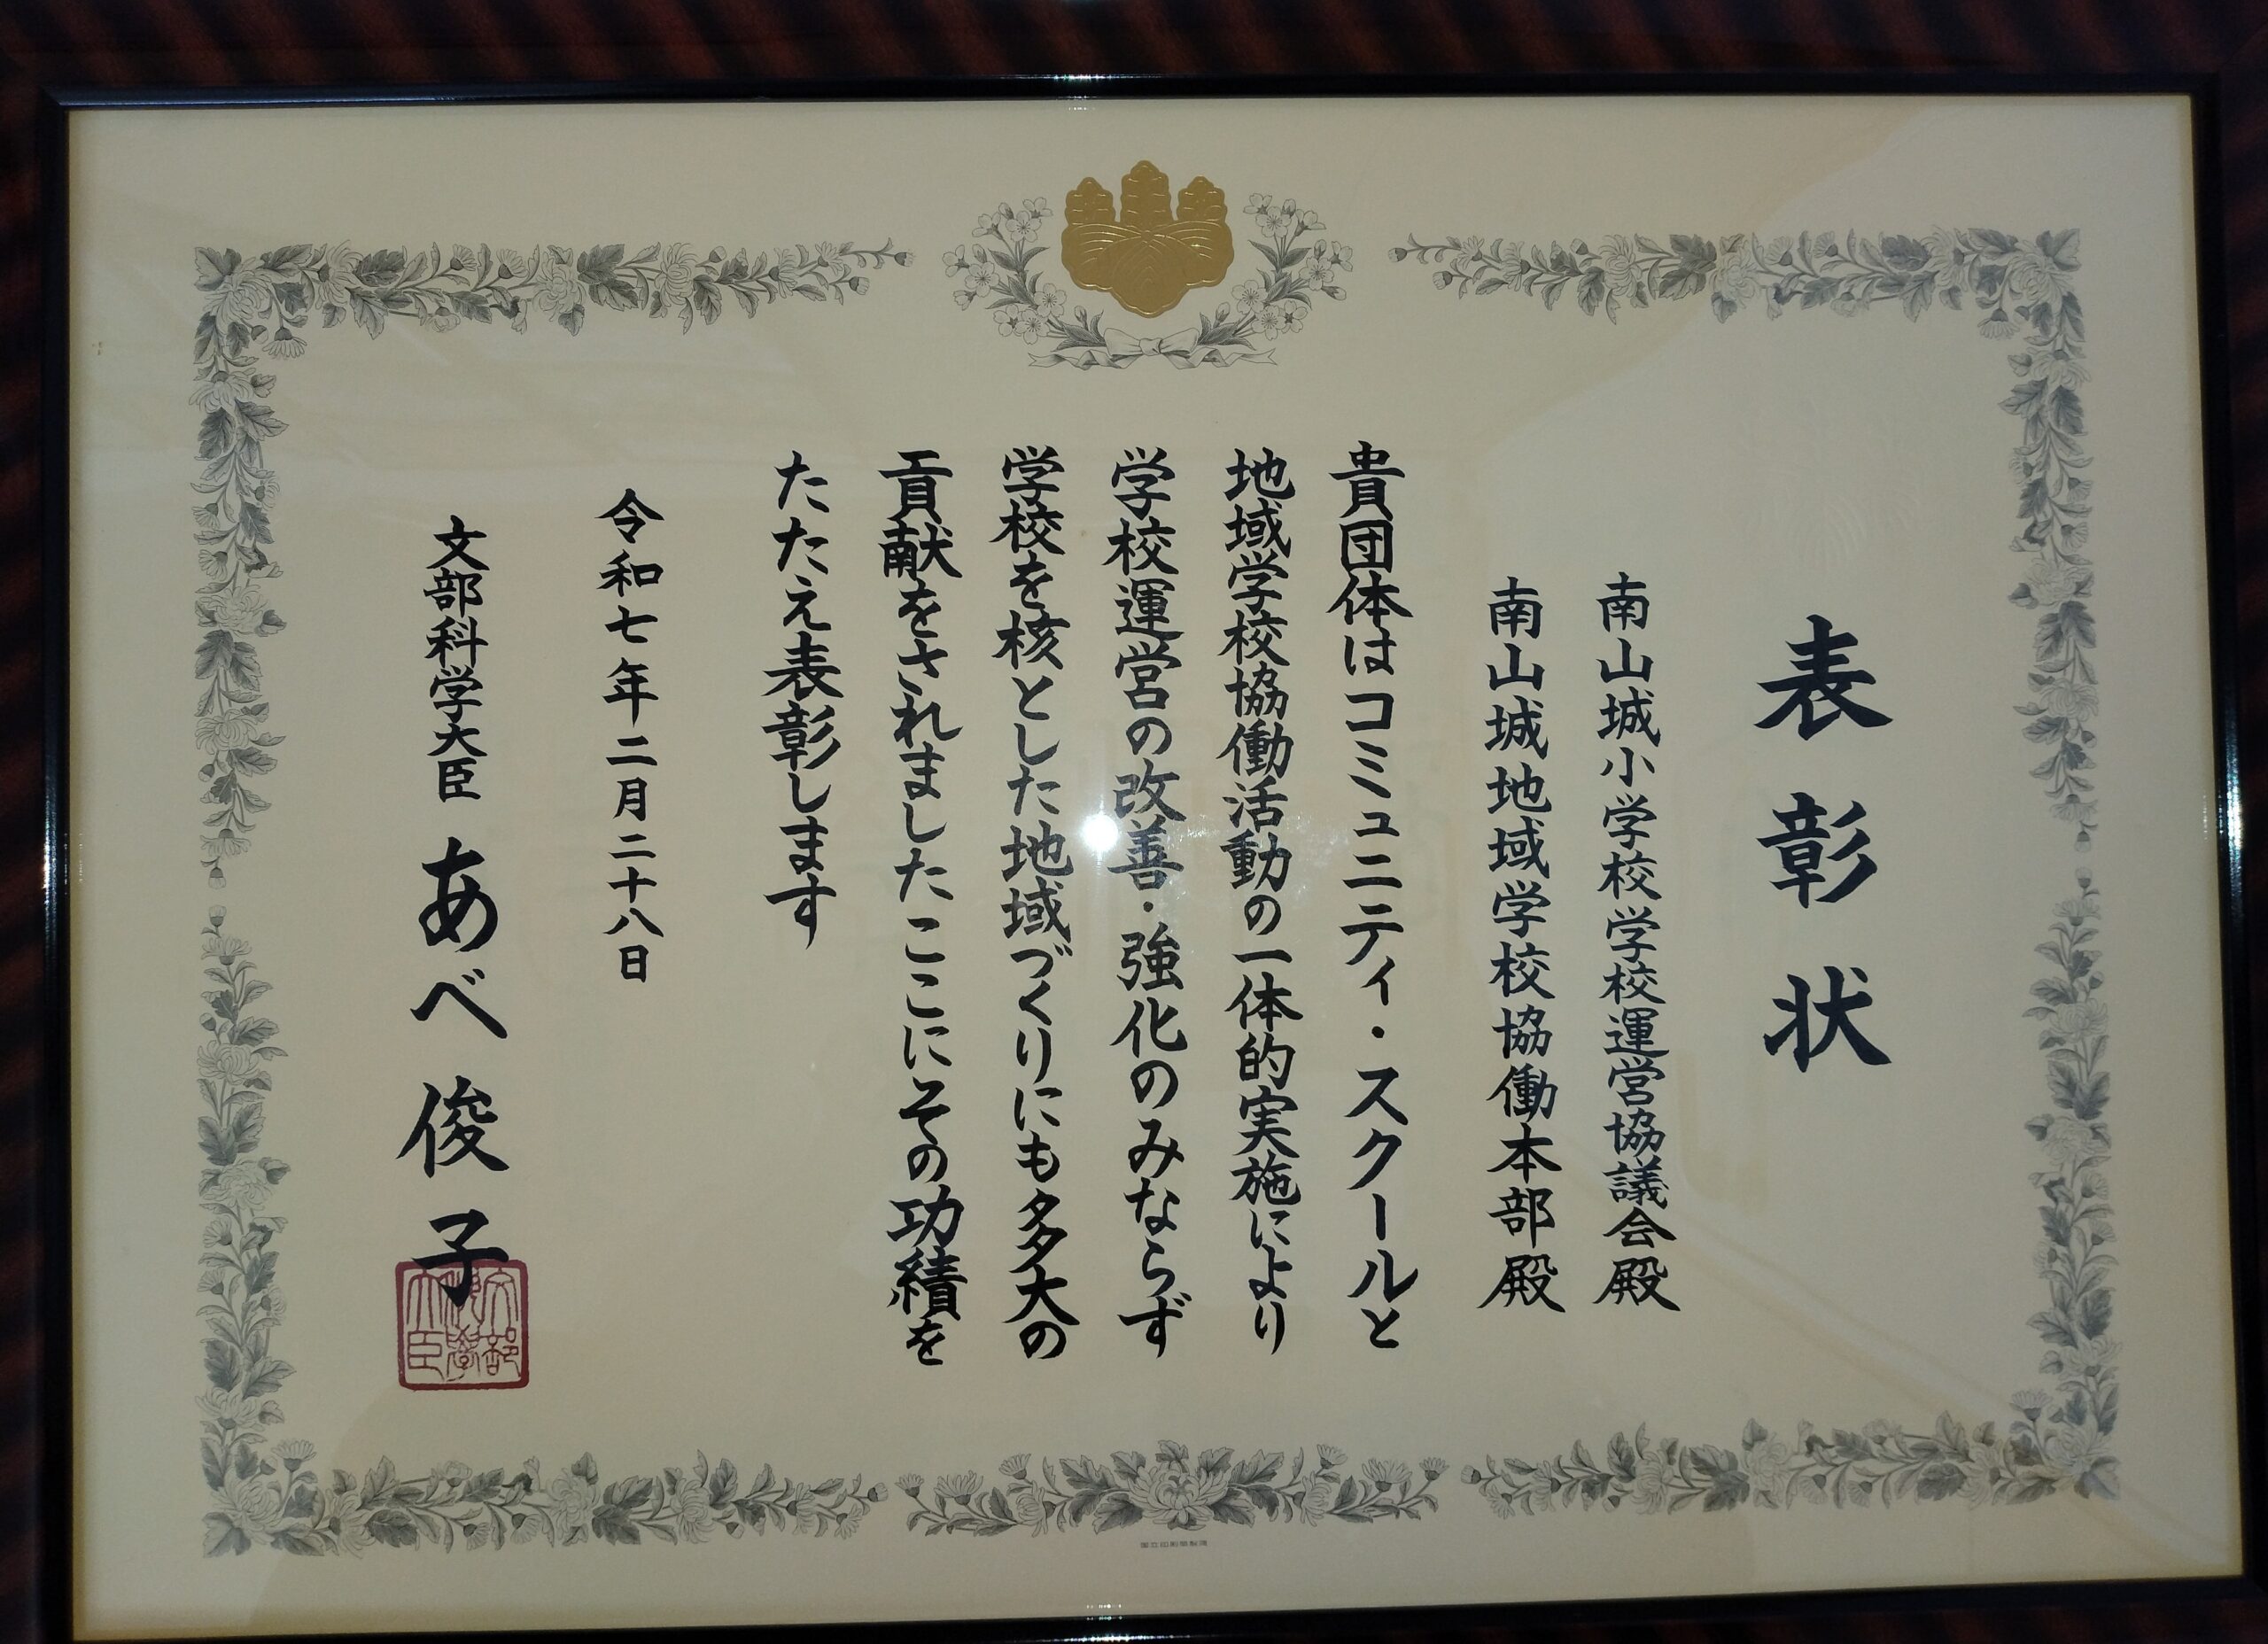 表彰状
南山城小学校学校運営協議会殿
南山城地域学校協働本部殿
貴団体はコミュニティ・スクールと
地域学校協働活動の一体的実施により
学校運営の改善・強化のみならず
学校を核とした地域づくりにも多大の
貢献をされましたここにその功績を
たたえ表彰します
令和七年二月二十八日
文部科学大臣 あべ俊子
文部科學大臣
国立印刷局製造